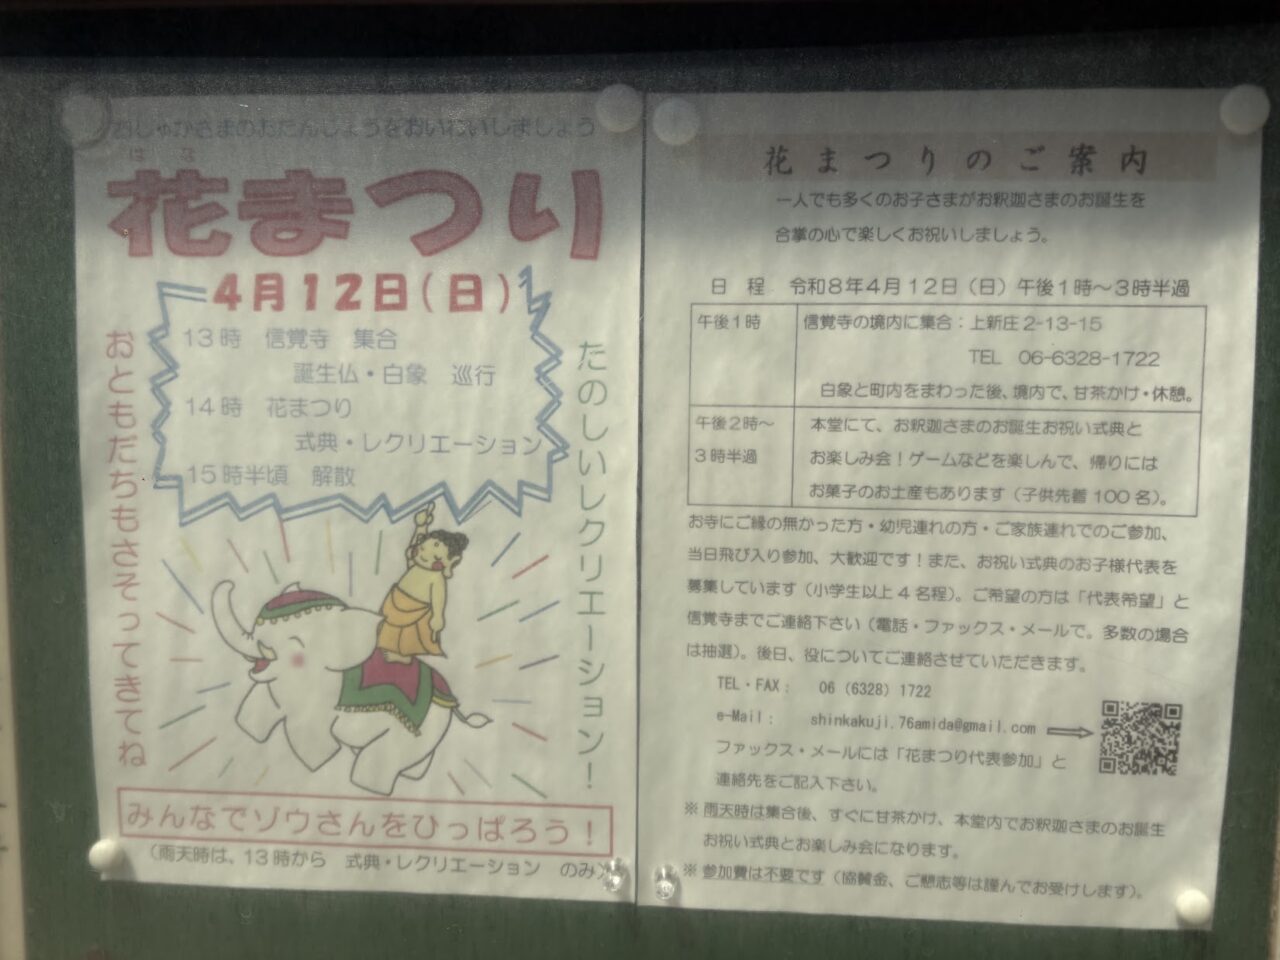 おしゃかさまのおたんじょうをおいわいしましょう
は な
花まつり
4月12日(日)
13時 信覚寺 集合
誕生仏・白象 巡行
14時 花まつり
式典・レクリエーション
15時半頃 解散
おともだちもさそってきてね
たのしいレクリエーション!
みんなでゾウさんをひっぱろう!
(雨天時は、13時から 式典・レクリエーション のみ)
花まつりのご案内
一人でも多くのお子さまがお釈迦さまのお誕生を
合掌の心で楽しくお祝いしましょう。
日 程 令和8年4月12日(日)午後1時~3時半過
午後1時 信覚寺の境内に集合:上新庄2-13-15
TEL 06-6328-1722
白象と町内をまわった後、境内で、甘茶かけ・休憩。
午後2時~ 本堂にて、お釈迦さまのお誕生お祝い式典と
3時半過 お楽しみ会!ゲームなどを楽しんで、帰りには
お菓子のお土産もあります(子供先着100名)。
お寺にご縁の無かった方・幼児連れの方・ご家族連れでのご参加、
当日飛び入り参加、大歓迎です!また、お祝い式典のお子様代表を
募集しています(小学生以上4名程)。ご希望の方は「代表希望」と
信覚寺までご連絡下さい(電話・ファックス・メールで。多数の場合
は抽選)。後日、役についてご連絡させていただきます。
TEL・FAX: 06(6328)1722
e-Mail: shinkakuji.76amida@gmail.com
ファックス・メールには「花まつり代表参加」と
連絡先をご記入下さい。
※ 雨天時は集合後、すぐに甘茶かけ、本堂内でお釈迦さまのお誕生
お祝い式典とお楽しみ会になります。
※ 参加費は不要です(協賛金、ご懇志等は謹んでお受けします)。